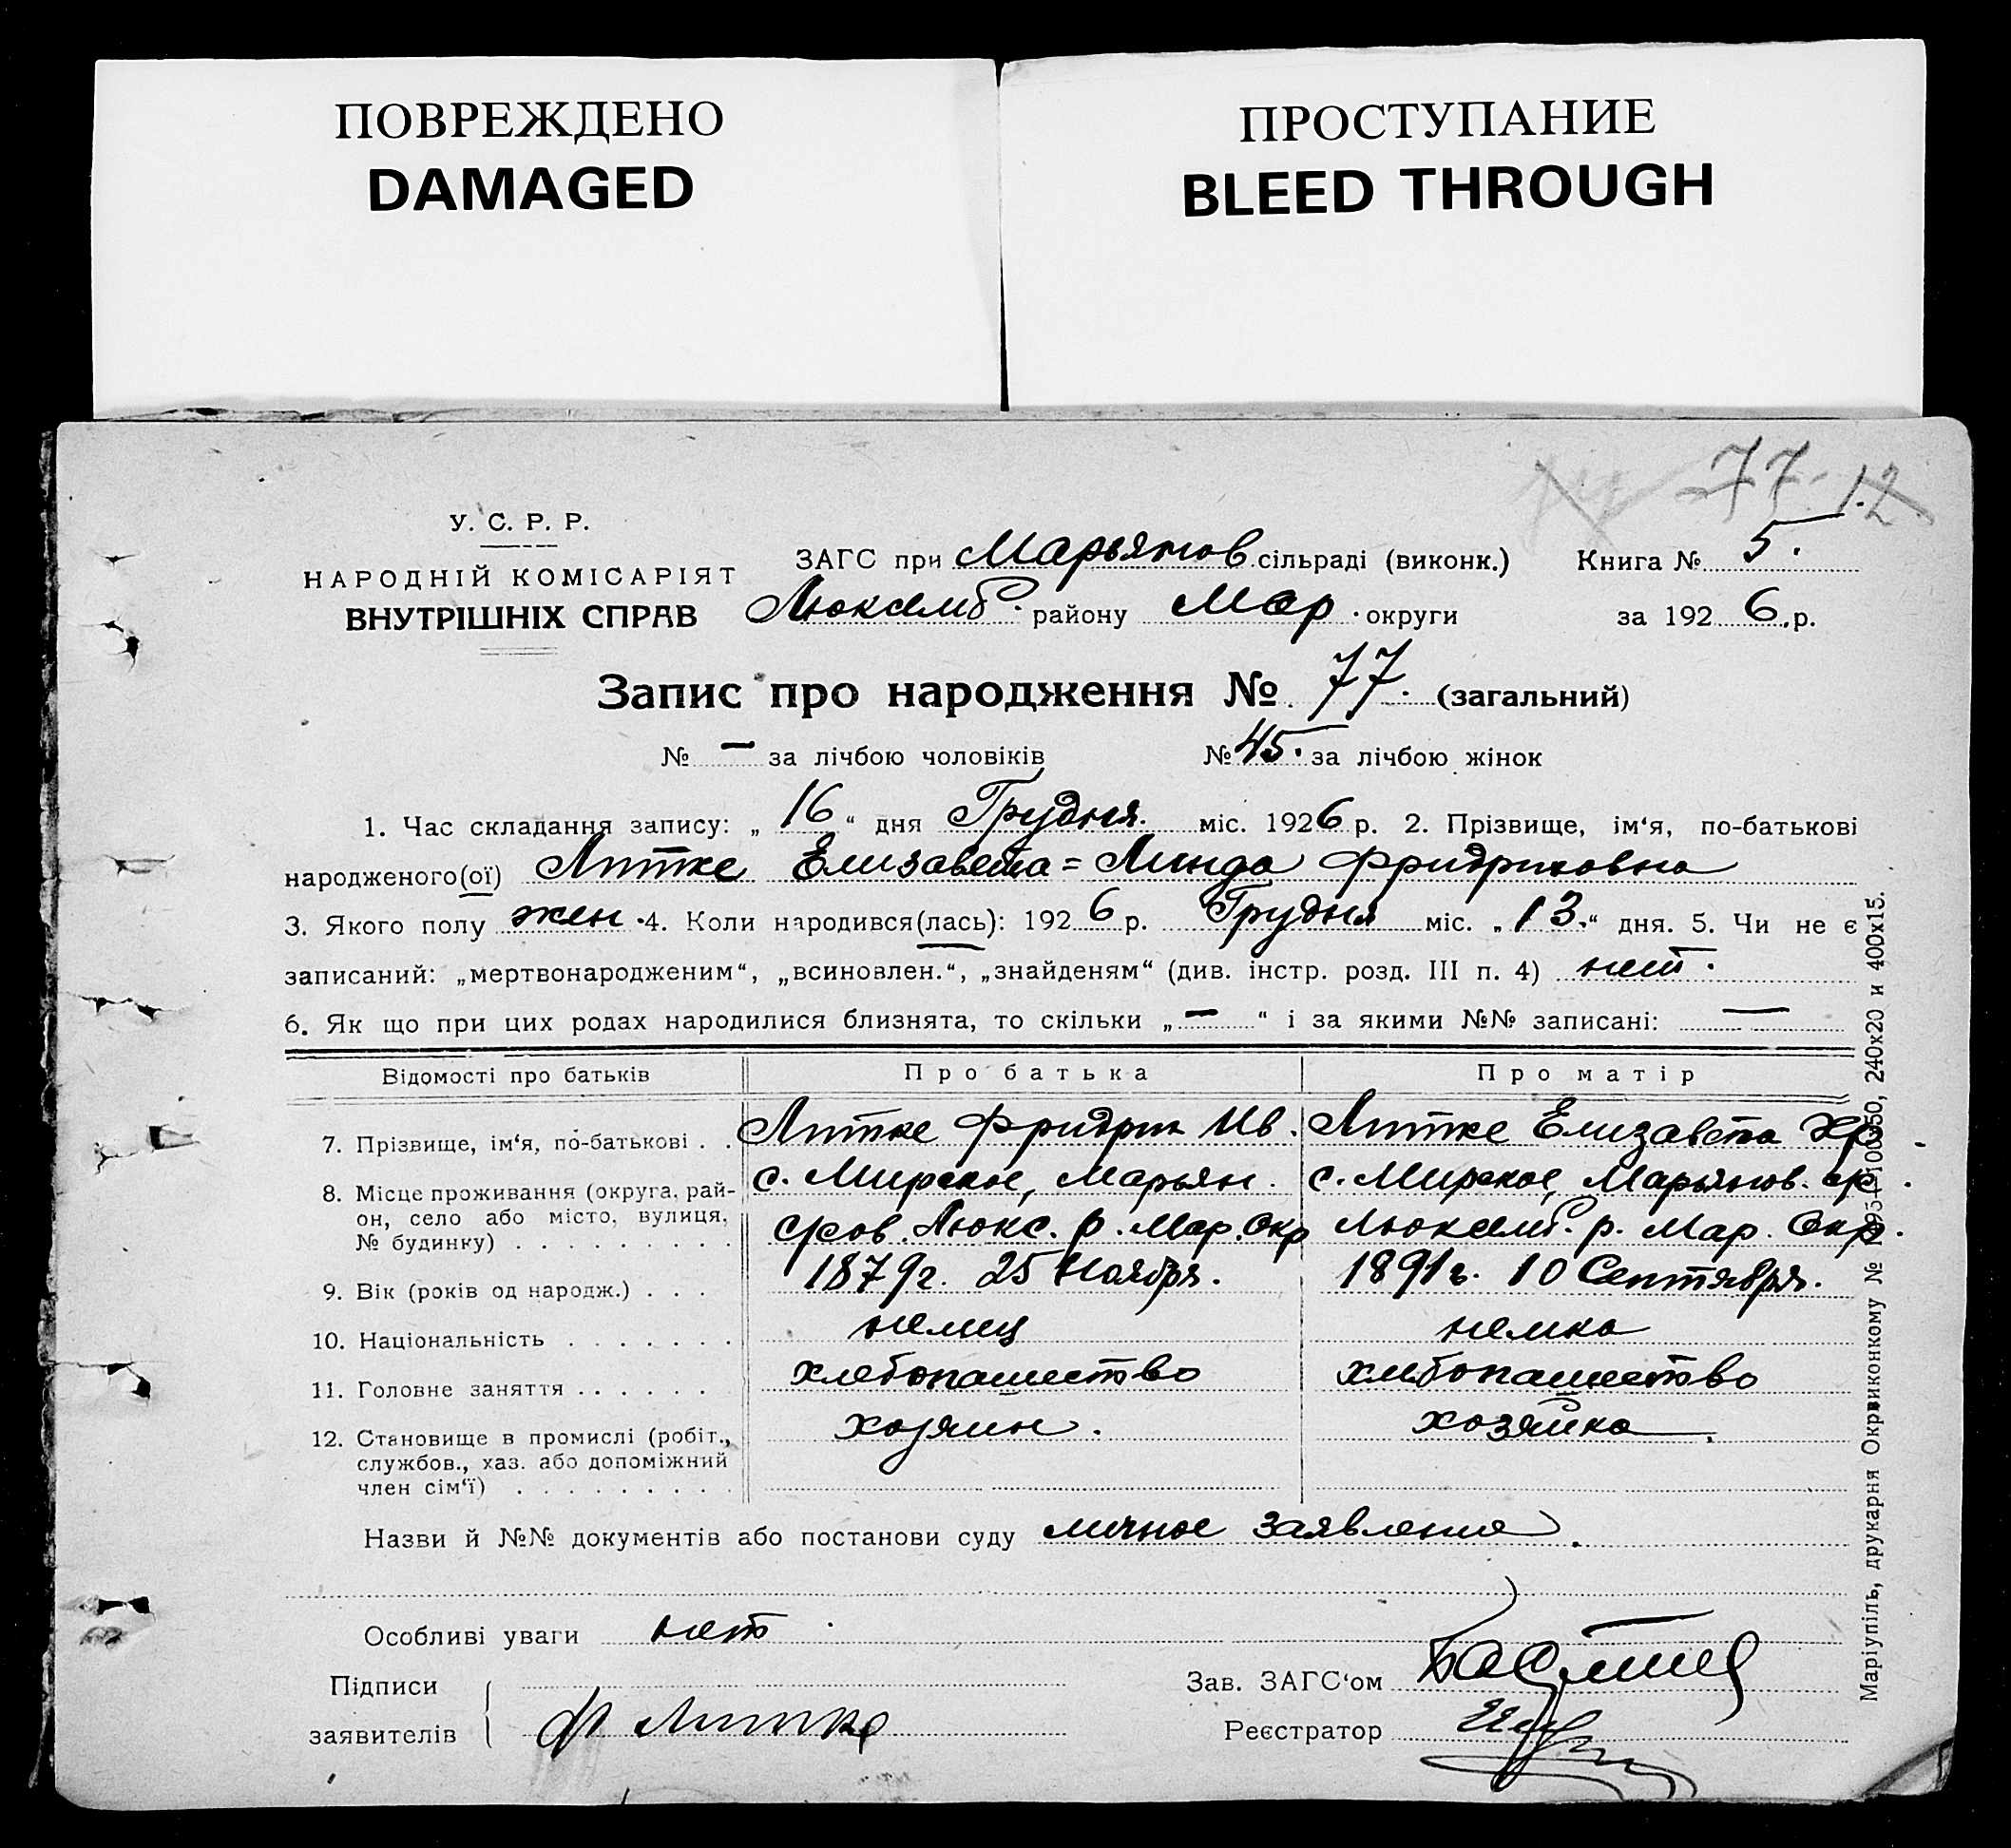 ПОВРЕЖДЕНО
DAMAGED
ПРОСТУПАНИЕ
BLEED THROUGH
77. 12
У. С. Р. Р.
НАРОДНІЙ КОМІСАРІЯТ
ВНУТРІШНІХ СПРАВ
ЗАГС при Марьянов сільраді (виконк.) Книга № 5.
Люксемб. району Мар. округи за 1926 р.
Запис про народження № 77. (загальний)
№ — за лічбою чоловіків № 45. за лічбою жінок
1. Час складання запису: „16“ дня Грудня. міс. 1926 р. 2. Прізвище, ім‘я, по-батькові
народженого(ої) Литке Елизавета = Линда Фридриховна
3. Якого полу жен. 4. Коли народився(лась): 1926 р. Грудня міс. „13.“ дня. 5. Чи не є
записаний: „мертвонародженим“, „всиновлен.“, „знайденям“ (див. інстр. розд. III п. 4) нет.
6. Як що при цих родах народилися близнята, то скільки „—“ і за якими №№ записані: —
Відомості про батьків Про батька Про матір
7. Прізвище, ім‘я, по-батькові . . Литке Фридрих Ив. Литке Елизавета Хр.
8. Місце проживання (округа, рай- с. Мирское, Марьян. с. Мирское, Марьянов. ср.
он, село або місто, вулиця,
№ будинку) . . . . . . . . . Люкс. р. Мар. Окр Люксемб. р. Мар. Окр.
9. Вік (років од народж.) . . . 1879г. 25 Ноября. 1891г. 10 Сентября.
10. Національність . . . . . . . немец немка
11. Головне заняття . . . . . . хлебопашество хлебопашество
12. Становище в промислі (робіт., хозяин. хозяйка.
службов., хаз. або допоміжний
член сім‘ї) . . . . . . . . .
Назви й №№ документів або постанови суду личное заявление.
Особливі уваги нет
Підписи
заявителів Ф Литке
Зав. ЗАГС‘ом
Реєстратор
Маріупіль, друкарня Окрвиконкому № 240х20 и 400х15.